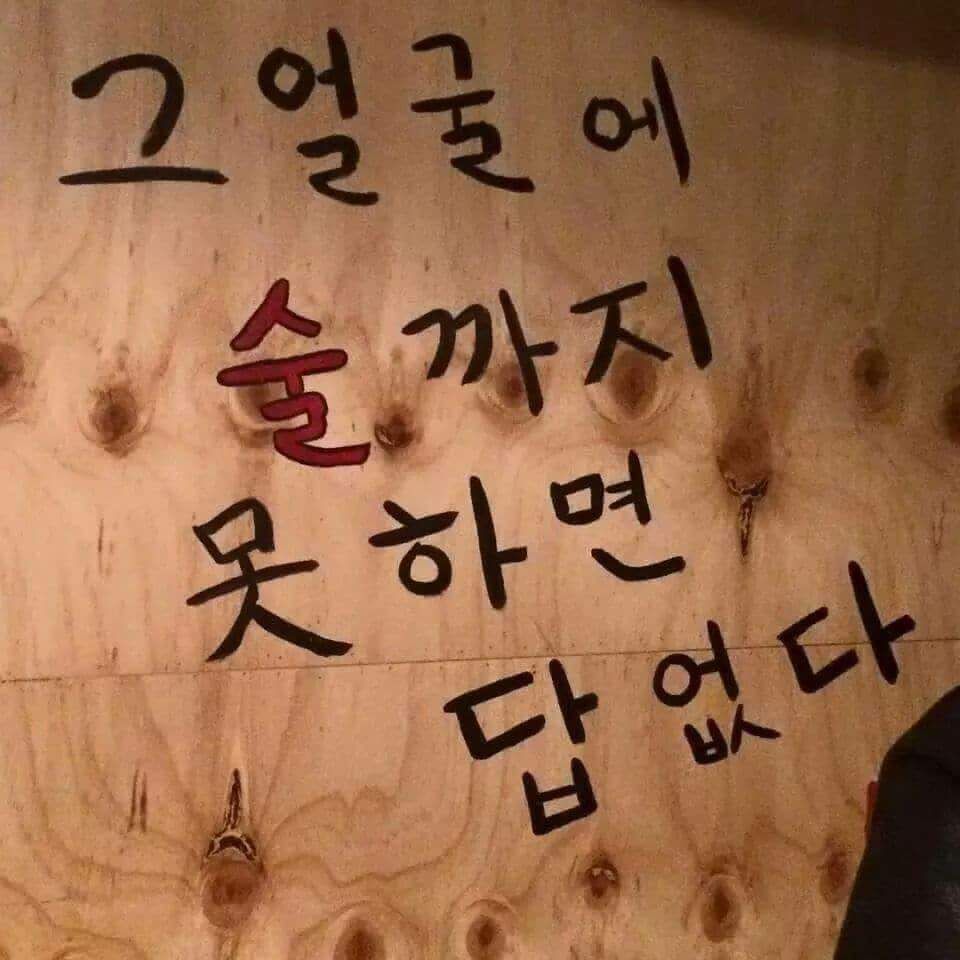 그얼굴에
술까지
못하면
답없다